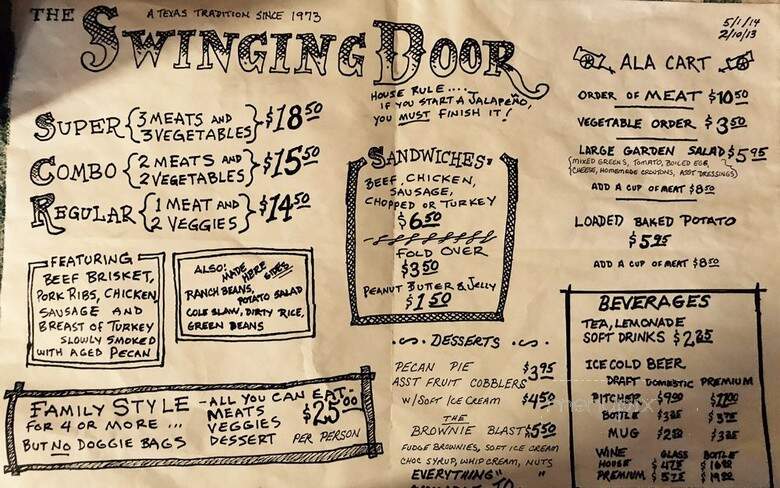 THE SWINGING DOOR
A TEXAS TRADITION SINCE 1973
5/1/14
2/10/13
HOUSE RULE....
IF YOU START A JALAPEÑO,
YOU MUST FINISH IT!
SUPER {3 MEATS AND 3 VEGETABLES} $18.50
COMBO {2 MEATS AND 2 VEGETABLES} $15.50
REGULAR {1 MEAT AND 2 VEGGIES} $14.50
FEATURING
BEEF BRISKET,
PORK RIBS, CHICKEN
SAUSAGE AND
BREAST OF TURKEY
SLOWLY SMOKED
WITH AGED PECAN
ALSO: MADE HERE SIDES
RANCH BEANS,
POTATO SALAD
COLE SLAW, DIRTY RICE,
GREEN BEANS
FAMILY STYLE - ALL YOU CAN EAT -
FOR 4 OR MORE ...
BUT NO DOGGIE BAGS
MEATS
VEGGIES
DESSERT
$25.00
PER PERSON
SANDWICHES
BEEF, CHICKEN,
SAUSAGE,
CHOPPED OR TURKEY
$6.50
FOLD OVER
$3.50
PEANUT BUTTER & JELLY
$1.50
DESSERTS
PECAN PIE
ASST FRUIT COBBLERS $3.95
W/SOFT ICE CREAM $4.50
THE
BROWNIE BLAST $5.50
FUDGE BROWNIES, SOFT ICE CREAM
CHOC SYRUP, WHIP CREAM, NUTS
EVERYTHING" "
TO
ALA CART
ORDER OF MEAT $10.50
VEGETABLE ORDER $3.50
LARGE GARDEN SALAD $5.95
(MIXED GREENS, TOMATO, BOILED EGG,
CHEESE, HOMEMADE CROUTONS, ASST DRESSINGS)
ADD A CUP OF MEAT $8.50
LOADED BAKED POTATO
$5.95
ADD A CUP OF MEAT $8.50
BEVERAGES
TEA, LEMONADE
SOFT DRINKS $2.25
ICE COLD BEER
DRAFT DOMESTIC PREMIUM
PITCHER $9.00
BOTTLE
MUG
WINE GLASS BOTTLE
HOUSE
PREMIUM